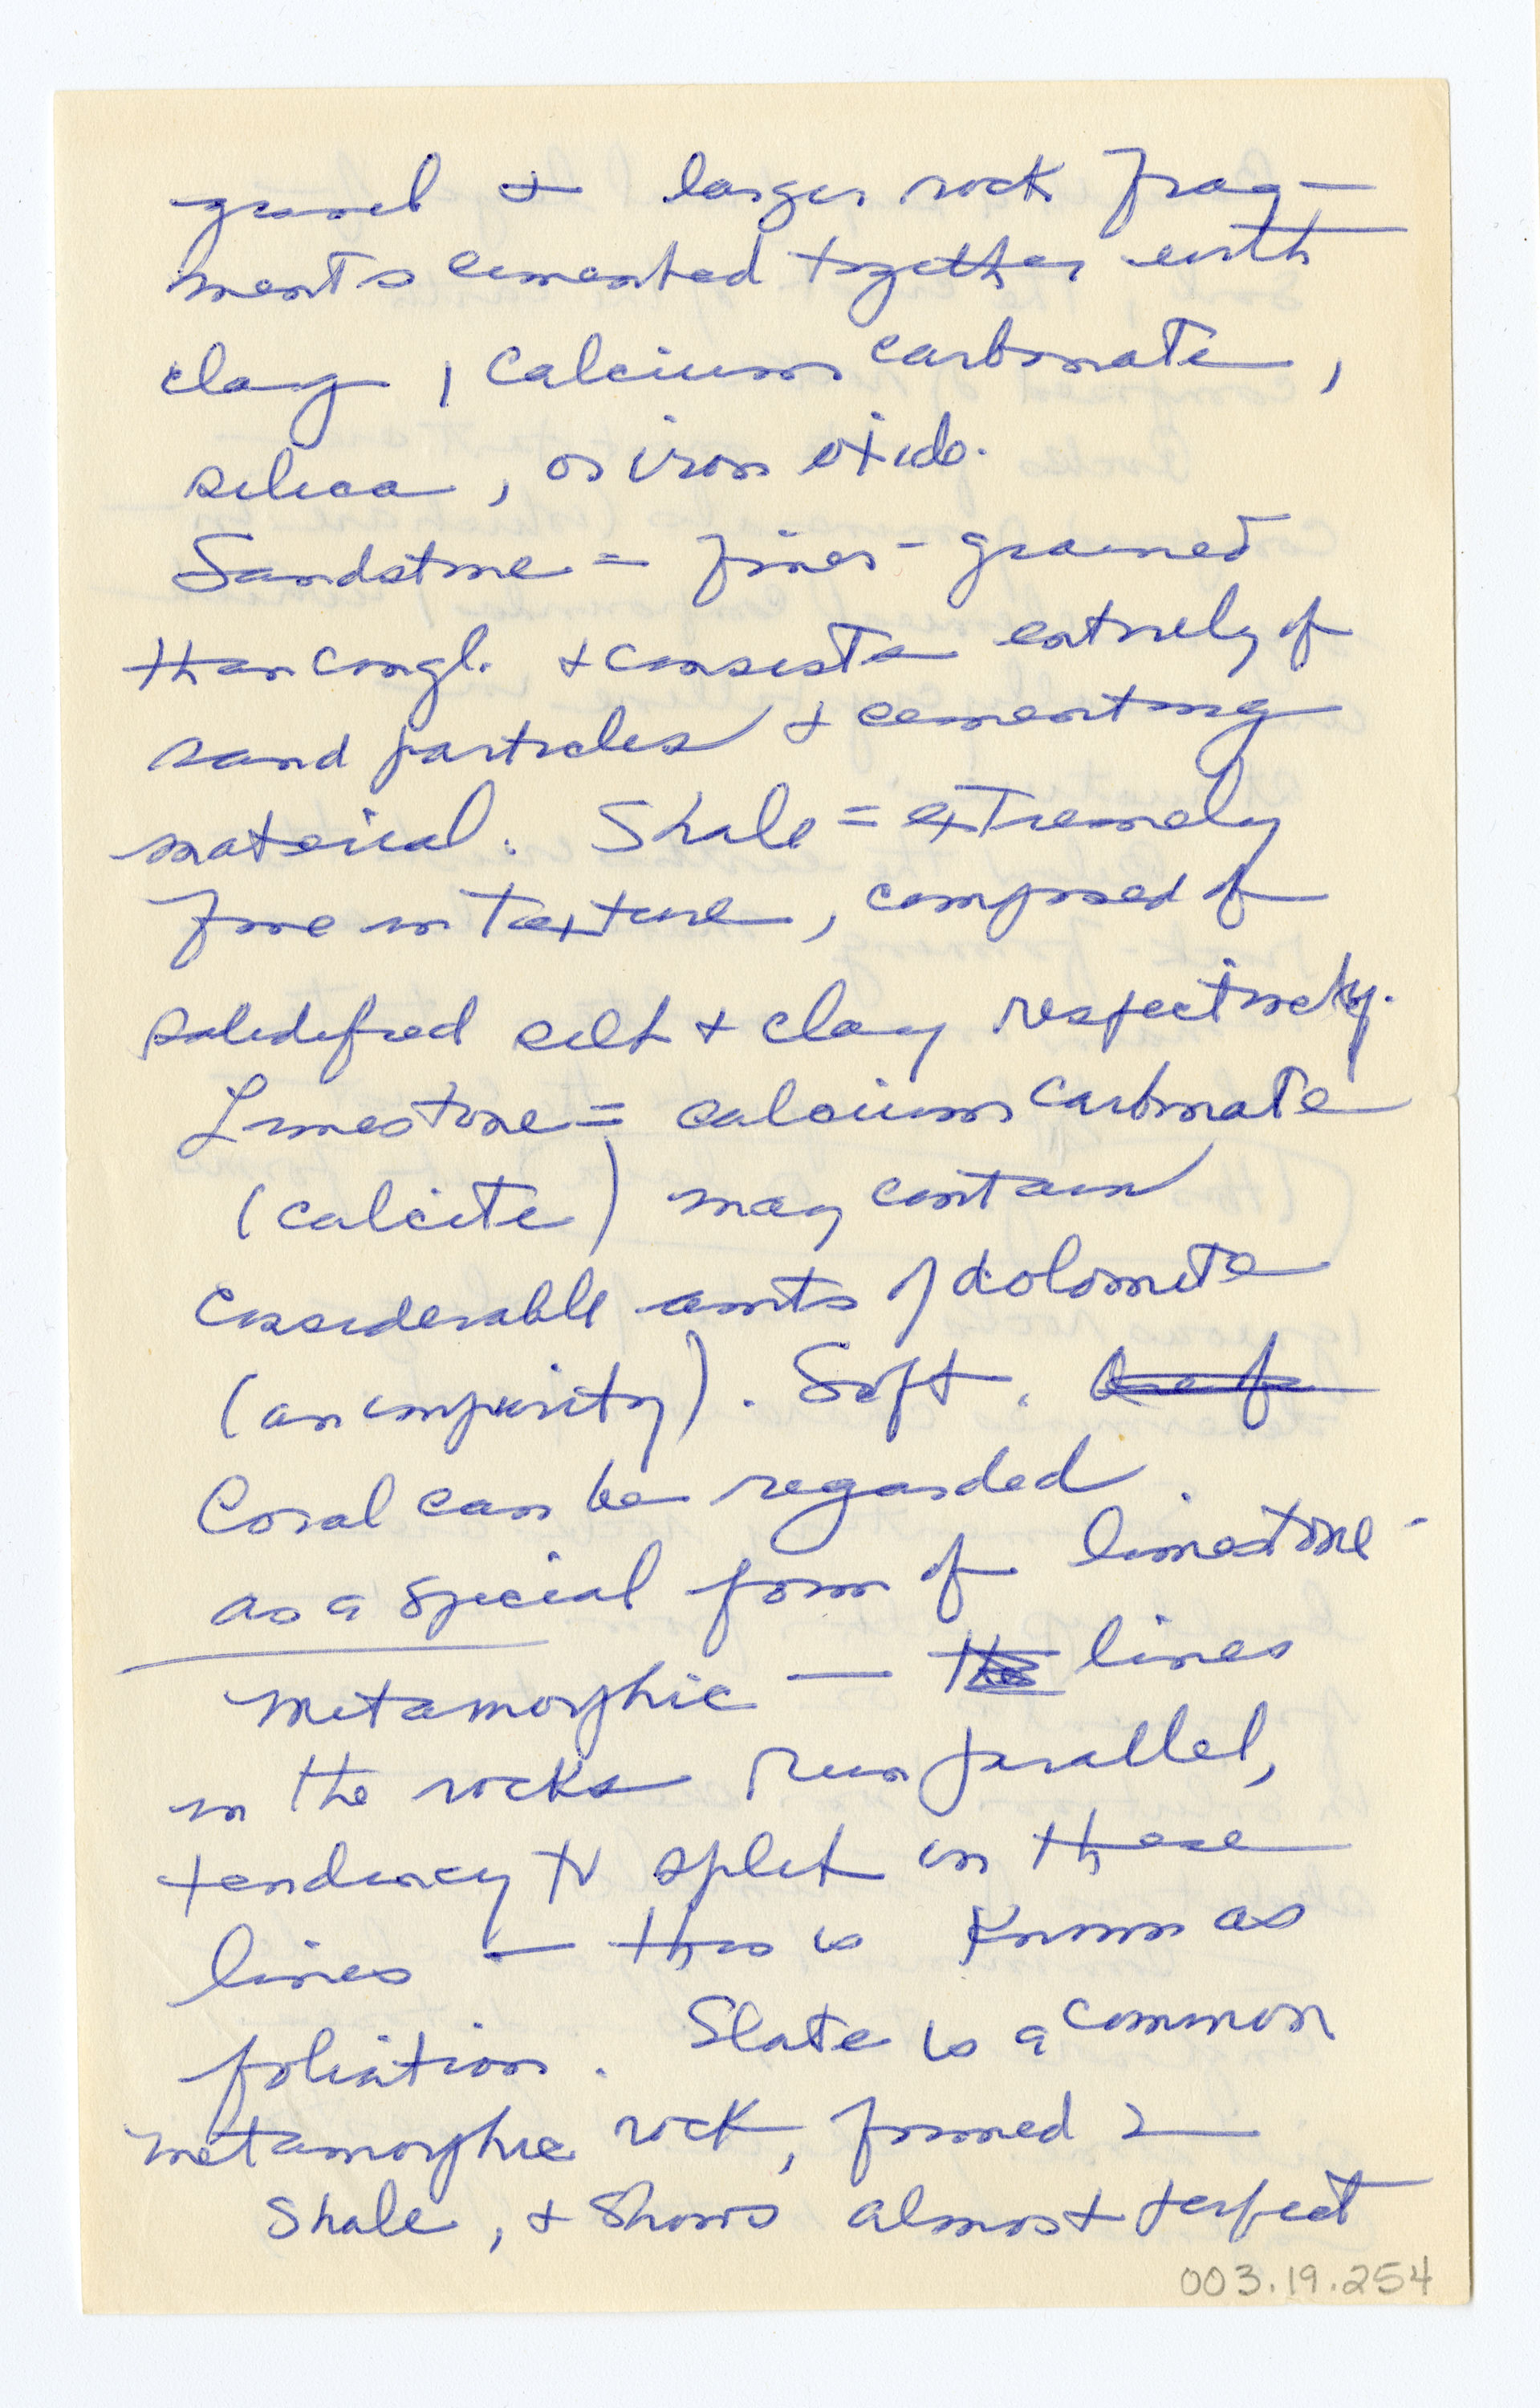 gravel + larger rock frag-
ments cemented together with
clay, calcium carbonate,
silica, or iron oxide.
Sandstone = finer-grained
than congl. + consists entirely of
sand particles + cementing
material. Shale = extremely
fine in texture, composed of
solidified silt + clay respectively.
Limestone = calcium carbonate
(calcite) may contain
considerable amts of dolomite
(an impurity). Soft.
Coral can be regarded
as a special form of limestone-
Metamorphic — the lines
in the rocks run parallel,
tendency to split in these
lines — this is known as
foliation. Slate is a common
metamorphic rock, formed
shale, + shows almost perfect
003.19.254